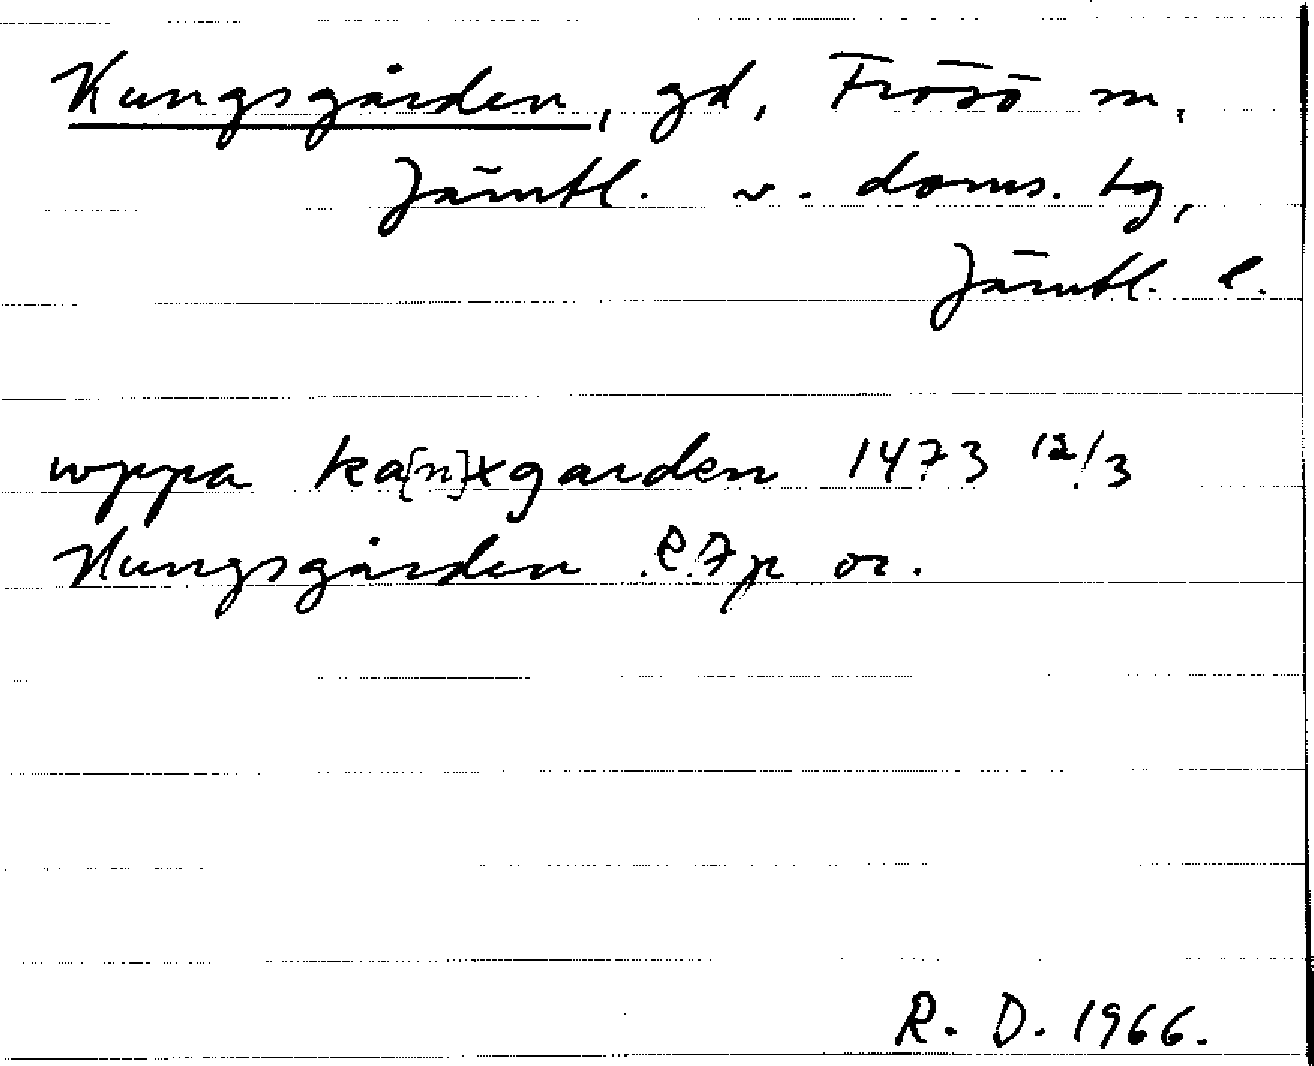 Kungsgården, gd, Frösö m,
Jämtl. v. doms. tg,
Jämtl. l.
uppa ka[n]xgarden 1473 12/3
Kungsgården or.
R. D. 1966.